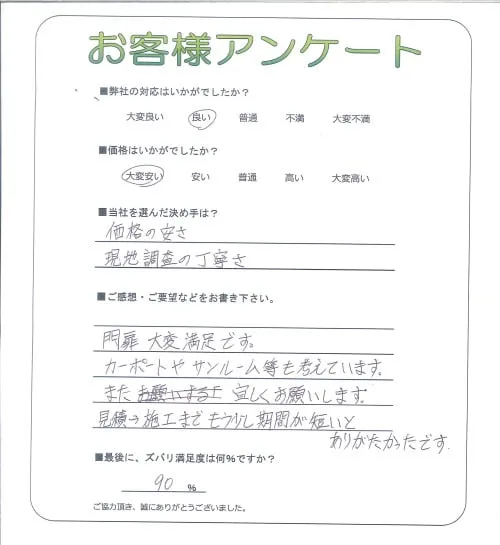 お客様アンケート
■弊社の対応はいかがでしたか？
大変良い 良い 普通 不満 大変不満
■価格はいかがでしたか？
大変安い 安い 普通 高い 大変高い
■当社を選んだ決め手は？
価格の安さ
現地調査の丁寧さ
■ご感想・ご要望などをお書き下さい。
門扉 大変満足です。
カーポートや サンルーム等も考えています。
また お願いする 宜しくお願いします。
見積→施工まで もう少し期間が短いと
ありがたかったです。
■最後に、ズバリ満足度は何％ですか？
90 ％
ご協力頂き、誠にありがとうございました。